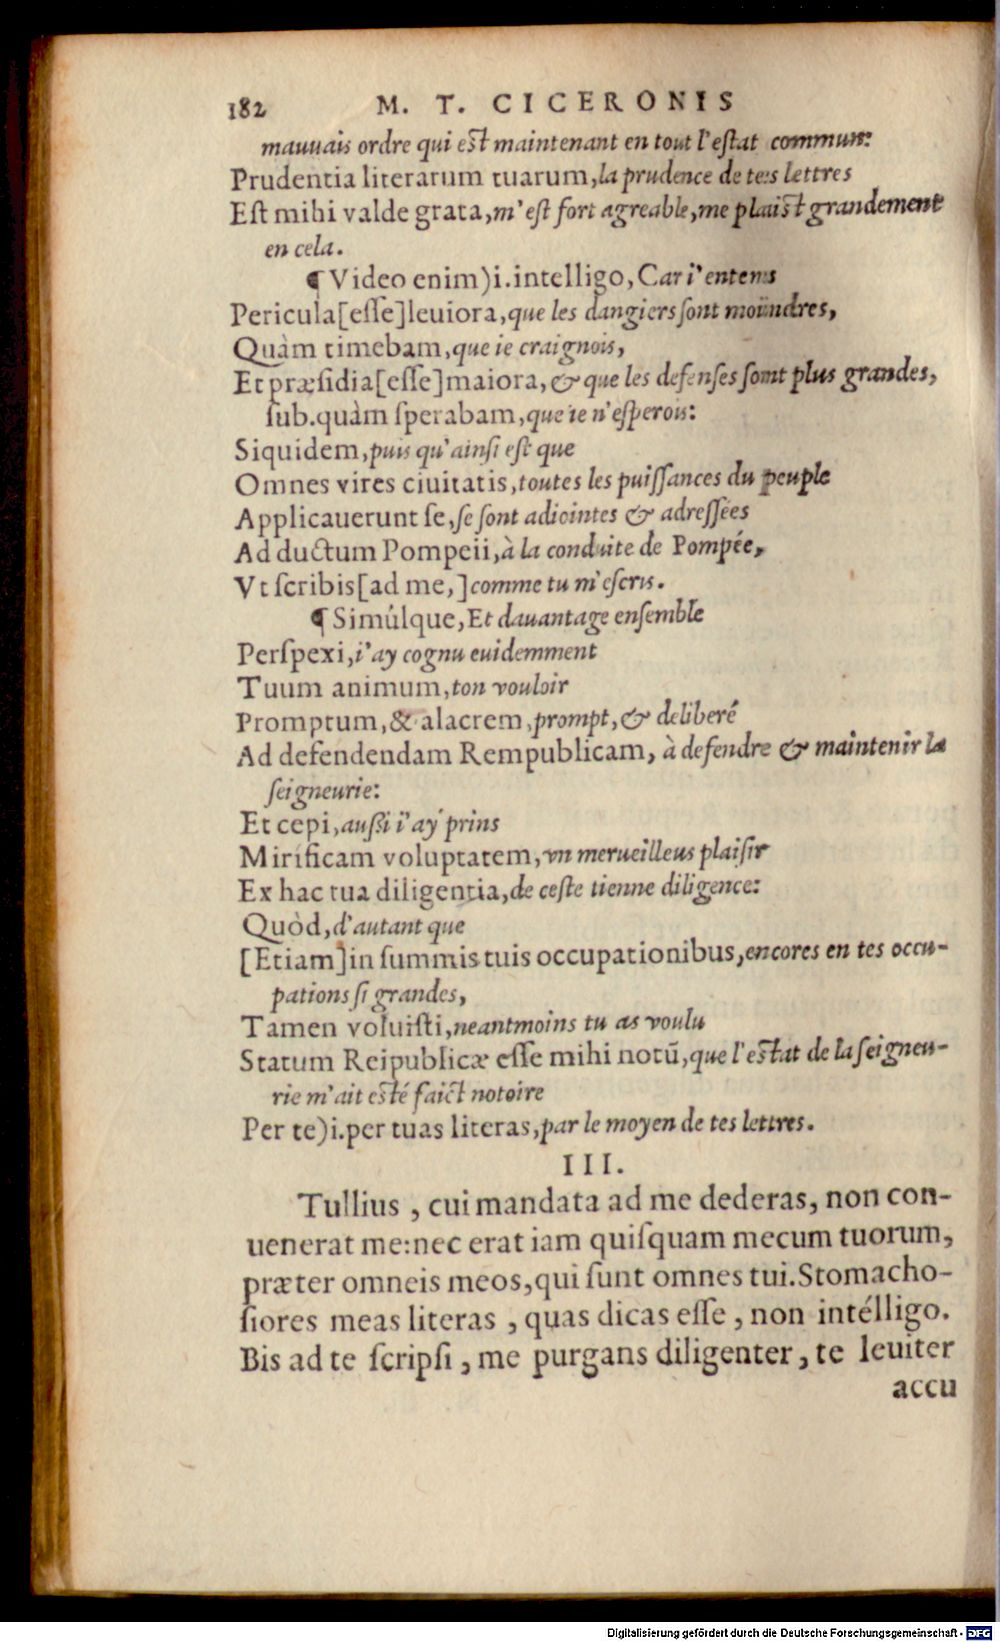 182 M. T. CICERONIS
mauuais ordre qui eſt maintenant en tout l'eſtat commun:
Prudentia literarum tuarum, la prudence de tes lettres
Eſt mihi valde grata, m'eſt fort agreable, me plaiſt grandement
en cela.
¶ Video enim) i. intelligo, Car i'entens
Pericula [eſſe] leuiora, que les dangiers ſont moindres,
Quàm timebam, que ie craignois,
Et præſidia [eſſe] maiora, & que les defenſes ſont plus grandes,
ſub. quàm ſperabam, que ie n'eſperois:
Siquidem, puis qu'ainſi eſt que
Omnes vires ciuitatis, toutes les puiſſances du peuple
Applicauerunt ſe, ſe ſont adiointes & adreſſées
Ad ductum Pompeii, à la conduite de Pompée,
Vt ſcribis [ad me,] comme tu m'eſcris.
¶ Simúlque, Et dauantage enſemble
Perſpexi, i'ay cognu euidemment
Tuum animum, ton vouloir
Promptum, & alacrem, prompt, & deliberé
Ad defendendam Rempublicam, à defendre & maintenir la
ſeigneurie:
Et cepi, auſſi i'ay prins
Mirificam voluptatem, vn merueilleus plaiſir
Ex hac tua diligentia, de ceſte tienne diligence:
Quòd, d'autant que
[Etiam] in ſummis tuis occupationibus, encores en tes occu-
pations ſi grandes,
Tamen voluiſti, neantmoins tu as voulu
Statum Reipublicæ eſſe mihi notũ, que l'eſtat de la ſeigneu-
rie m'ait eſté faict notoire
Per te) i. per tuas literas, par le moyen de tes lettres.
III.
Tullius, cui mandata ad me dederas, non con-
uenerat me: nec erat iam quiſquam mecum tuorum,
præter omneis meos, qui ſunt omnes tui. Stomacho-
ſiores meas literas, quas dicas eſſe, non intélligo.
Bis ad te ſcripſi, me purgans diligenter, te leuiter
accu
Digitalisierung gefördert durch die Deutsche Forschungsgemeinschaft - DFG